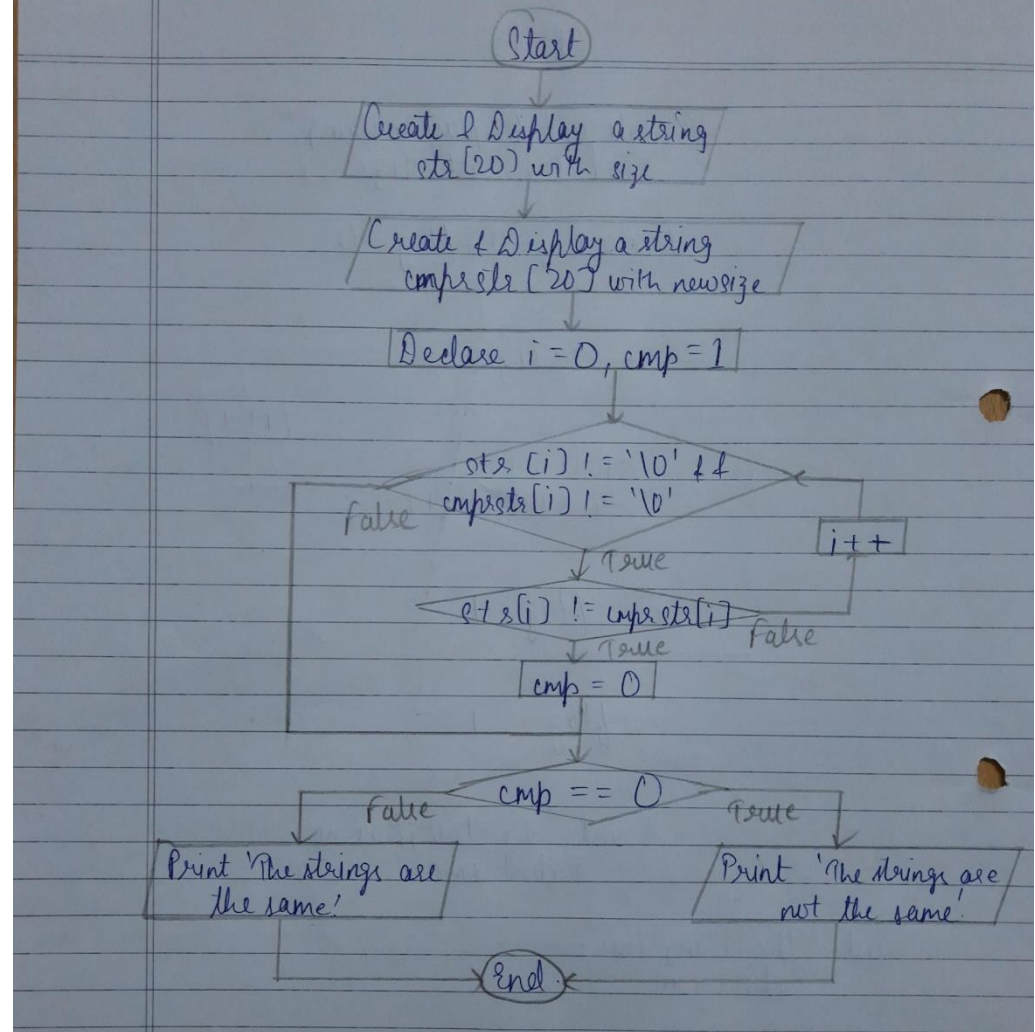 Start
Create & Display a string
str[20] with size
Create & Display a string
cmprstr[20] with newsize
Declare i = 0, cmp = 1
str[i] != '\0' &&
cmprstr[i] != '\0'
False
i++
True
str[i] != cmprstr[i]
False
True
cmp = 0
cmp == 0
False
True
Print 'The strings are
the same'
Print 'The strings are
not the same'
End